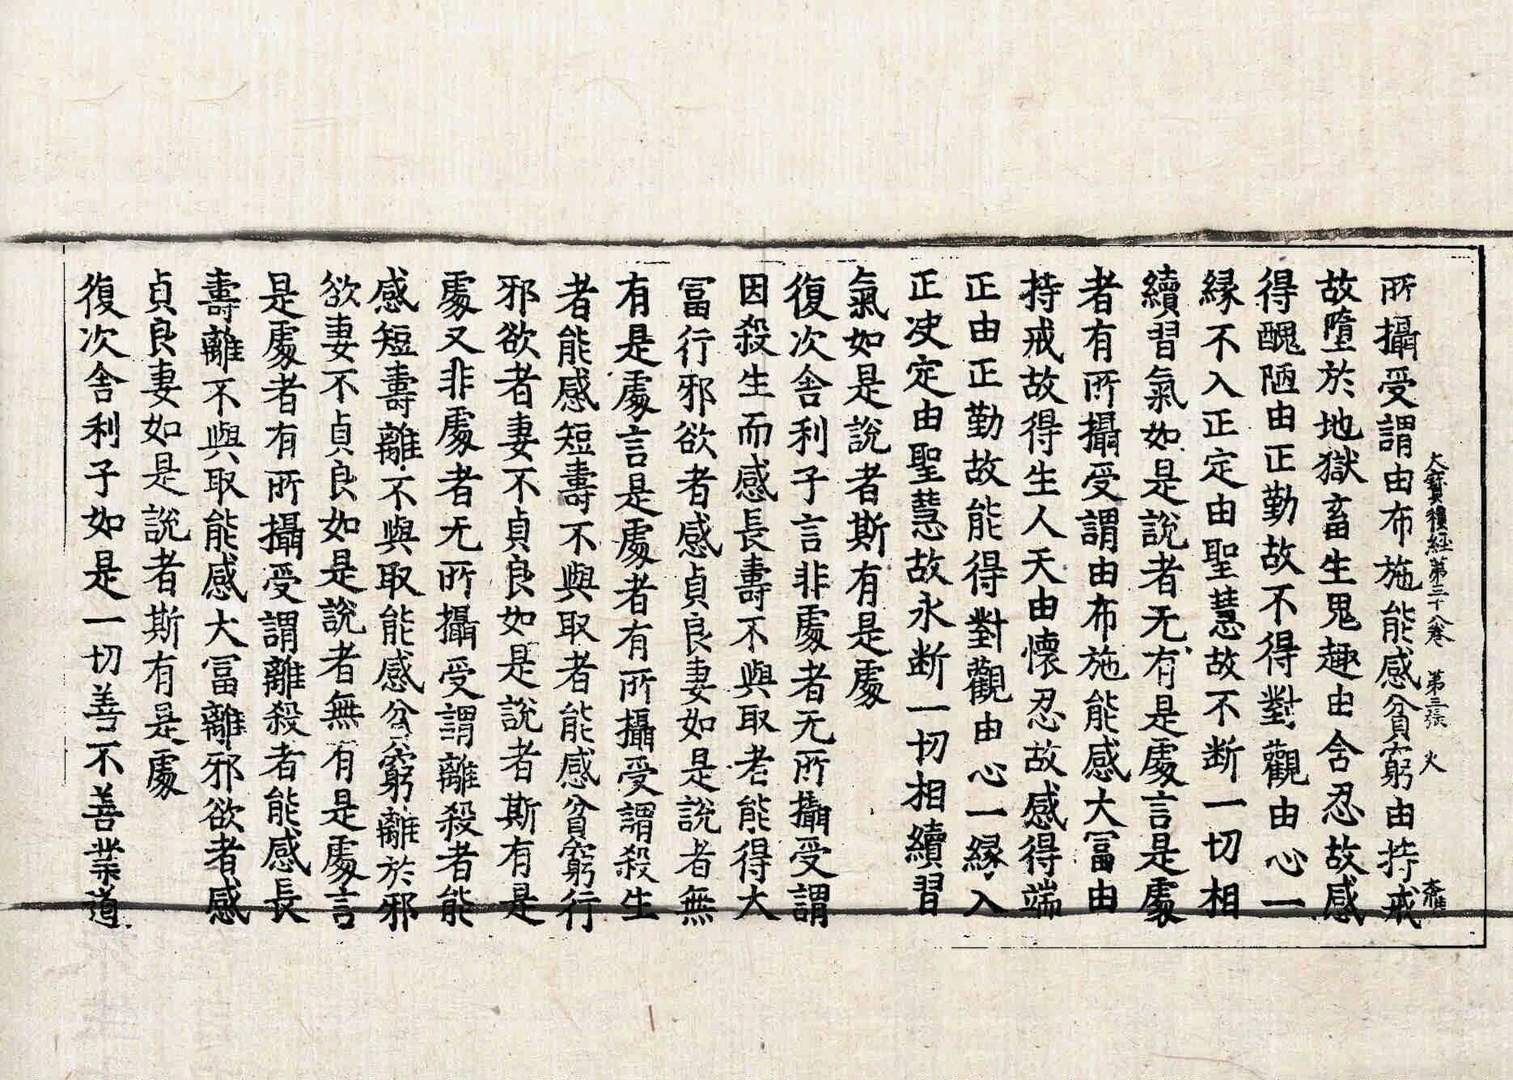 大寶積經第三十八卷 第三張 火
所攝受謂由布施能感貧窮由持戒
故墮於地獄畜生鬼趣由含忍故感
得醜陋由正勤故不得對觀由心一
縁不入正定由聖慧故不断一切相
續習氣如是說者无有是處言是處
者有所攝受謂由布施能感大冨由
持戒故得生人天由懷忍故感得端
正由正勤故能得對觀由心一縁入
正决定由聖慧故永断一切相續習
氣如是說者斯有是處
復次舍利子言非處者无所攝受謂
因殺生而感長壽不與取者能得大
冨行邪欲者感貞良妻如是說者無
有是處言是處者有所攝受謂殺生
者能感短壽不與取者能感貧窮行
邪欲者妻不貞良如是說者斯有是
處又非處者无所攝受謂離殺者能
感短壽離不與取能感貧窮離於邪
欲妻不貞良如是說者無有是處言
是處者有所攝受謂離殺者能感長
壽離不與取能感大冨離邪欲者感
貞良妻如是說者斯有是處
復次舍利子如是一切善不善業道